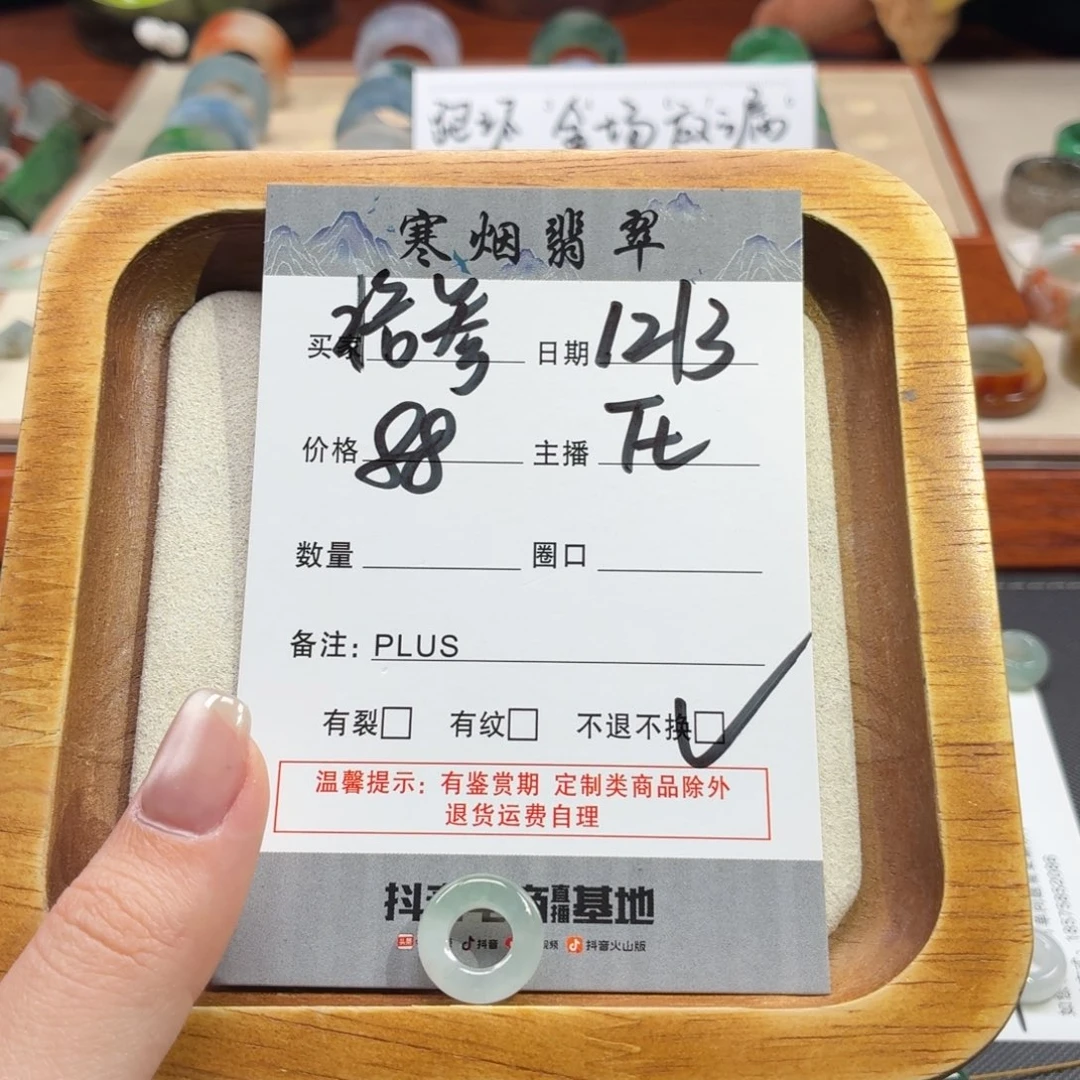 寒烟翡翠
买家 拾参 日期 12/3
价格 88 主播
数量 圈口
备注: PLUS
有裂 有纹 不退不换
温馨提示: 有鉴赏期 定制类商品除外
退货运费自理
抖音 直播基地
抖音 视频 抖音火山版